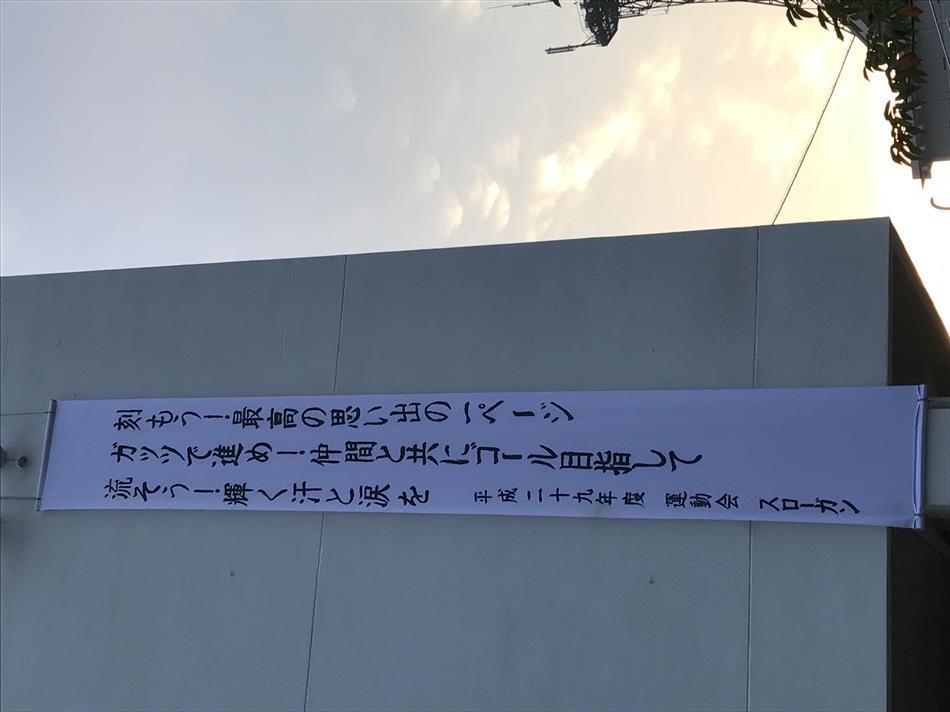 刻もう！最高の思い出の一ページ
ガッツで進め！仲間と共にゴール目指して
流そう！輝く汗と涙を
平成二十九年度 運動会 スローガン